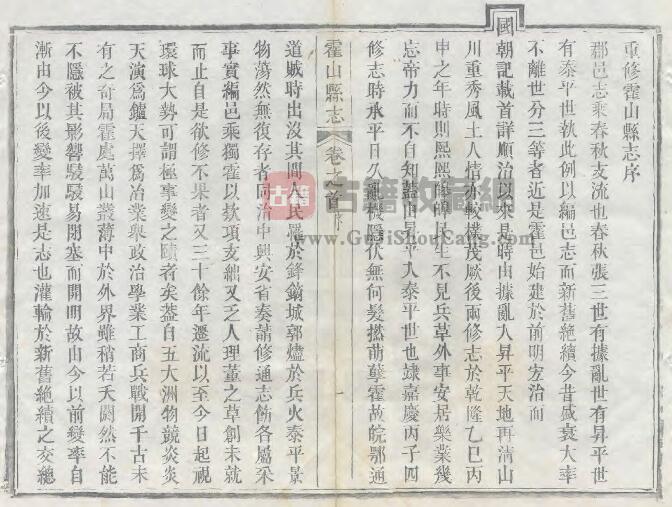 重修霍山縣志序
郡邑志乘春秋支流也春秋張三世有據亂世有昇平世
有泰平世執此例以編邑志而新舊絶續今昔盛衰大率
不離世分三等者近是霍邑始建於前明宏治而
國朝記載首詳順治以來是時由據亂入昇平天地再清山
川重秀風土人情亦較樸茂厥後兩修志於乾隆乙巳丙
申之年時則熙熙皞皞民生不見兵革外事安居樂業幾
忘帝力而不自知蓋由昇平入泰平世也逮嘉慶丙子四
修志時承平日久亂機隱伏無何髮撚萌孽霍故皖鄂通
霍山縣志 卷之首 序 一
道賊時出没其間人民罹於鋒鏑城郭燼於兵火泰平景
物蕩然無復存者同治中興安省奏請修通志飭各屬采
事實編邑乘獨霍以欵項支絀又乏人理董之草創未就
而止自是欲修不果者又三十餘年遷流以至今日起視
環球大勢可謂極事變之賾者矣蓋自五大洲物競炎炎
天演爲鑪天擇爲冶業舉政治學業工商兵戰開千古未
有之奇局霍處萬山叢薄中於外界雖稍若夭閼然不能
不隱被其影響駸駸易閉塞而開明故由今以前變率自
漸由今以後變率加速是志也灌輸於新舊絶續之交總
古籍 古籍收藏網
www.GuJiShouCang.com